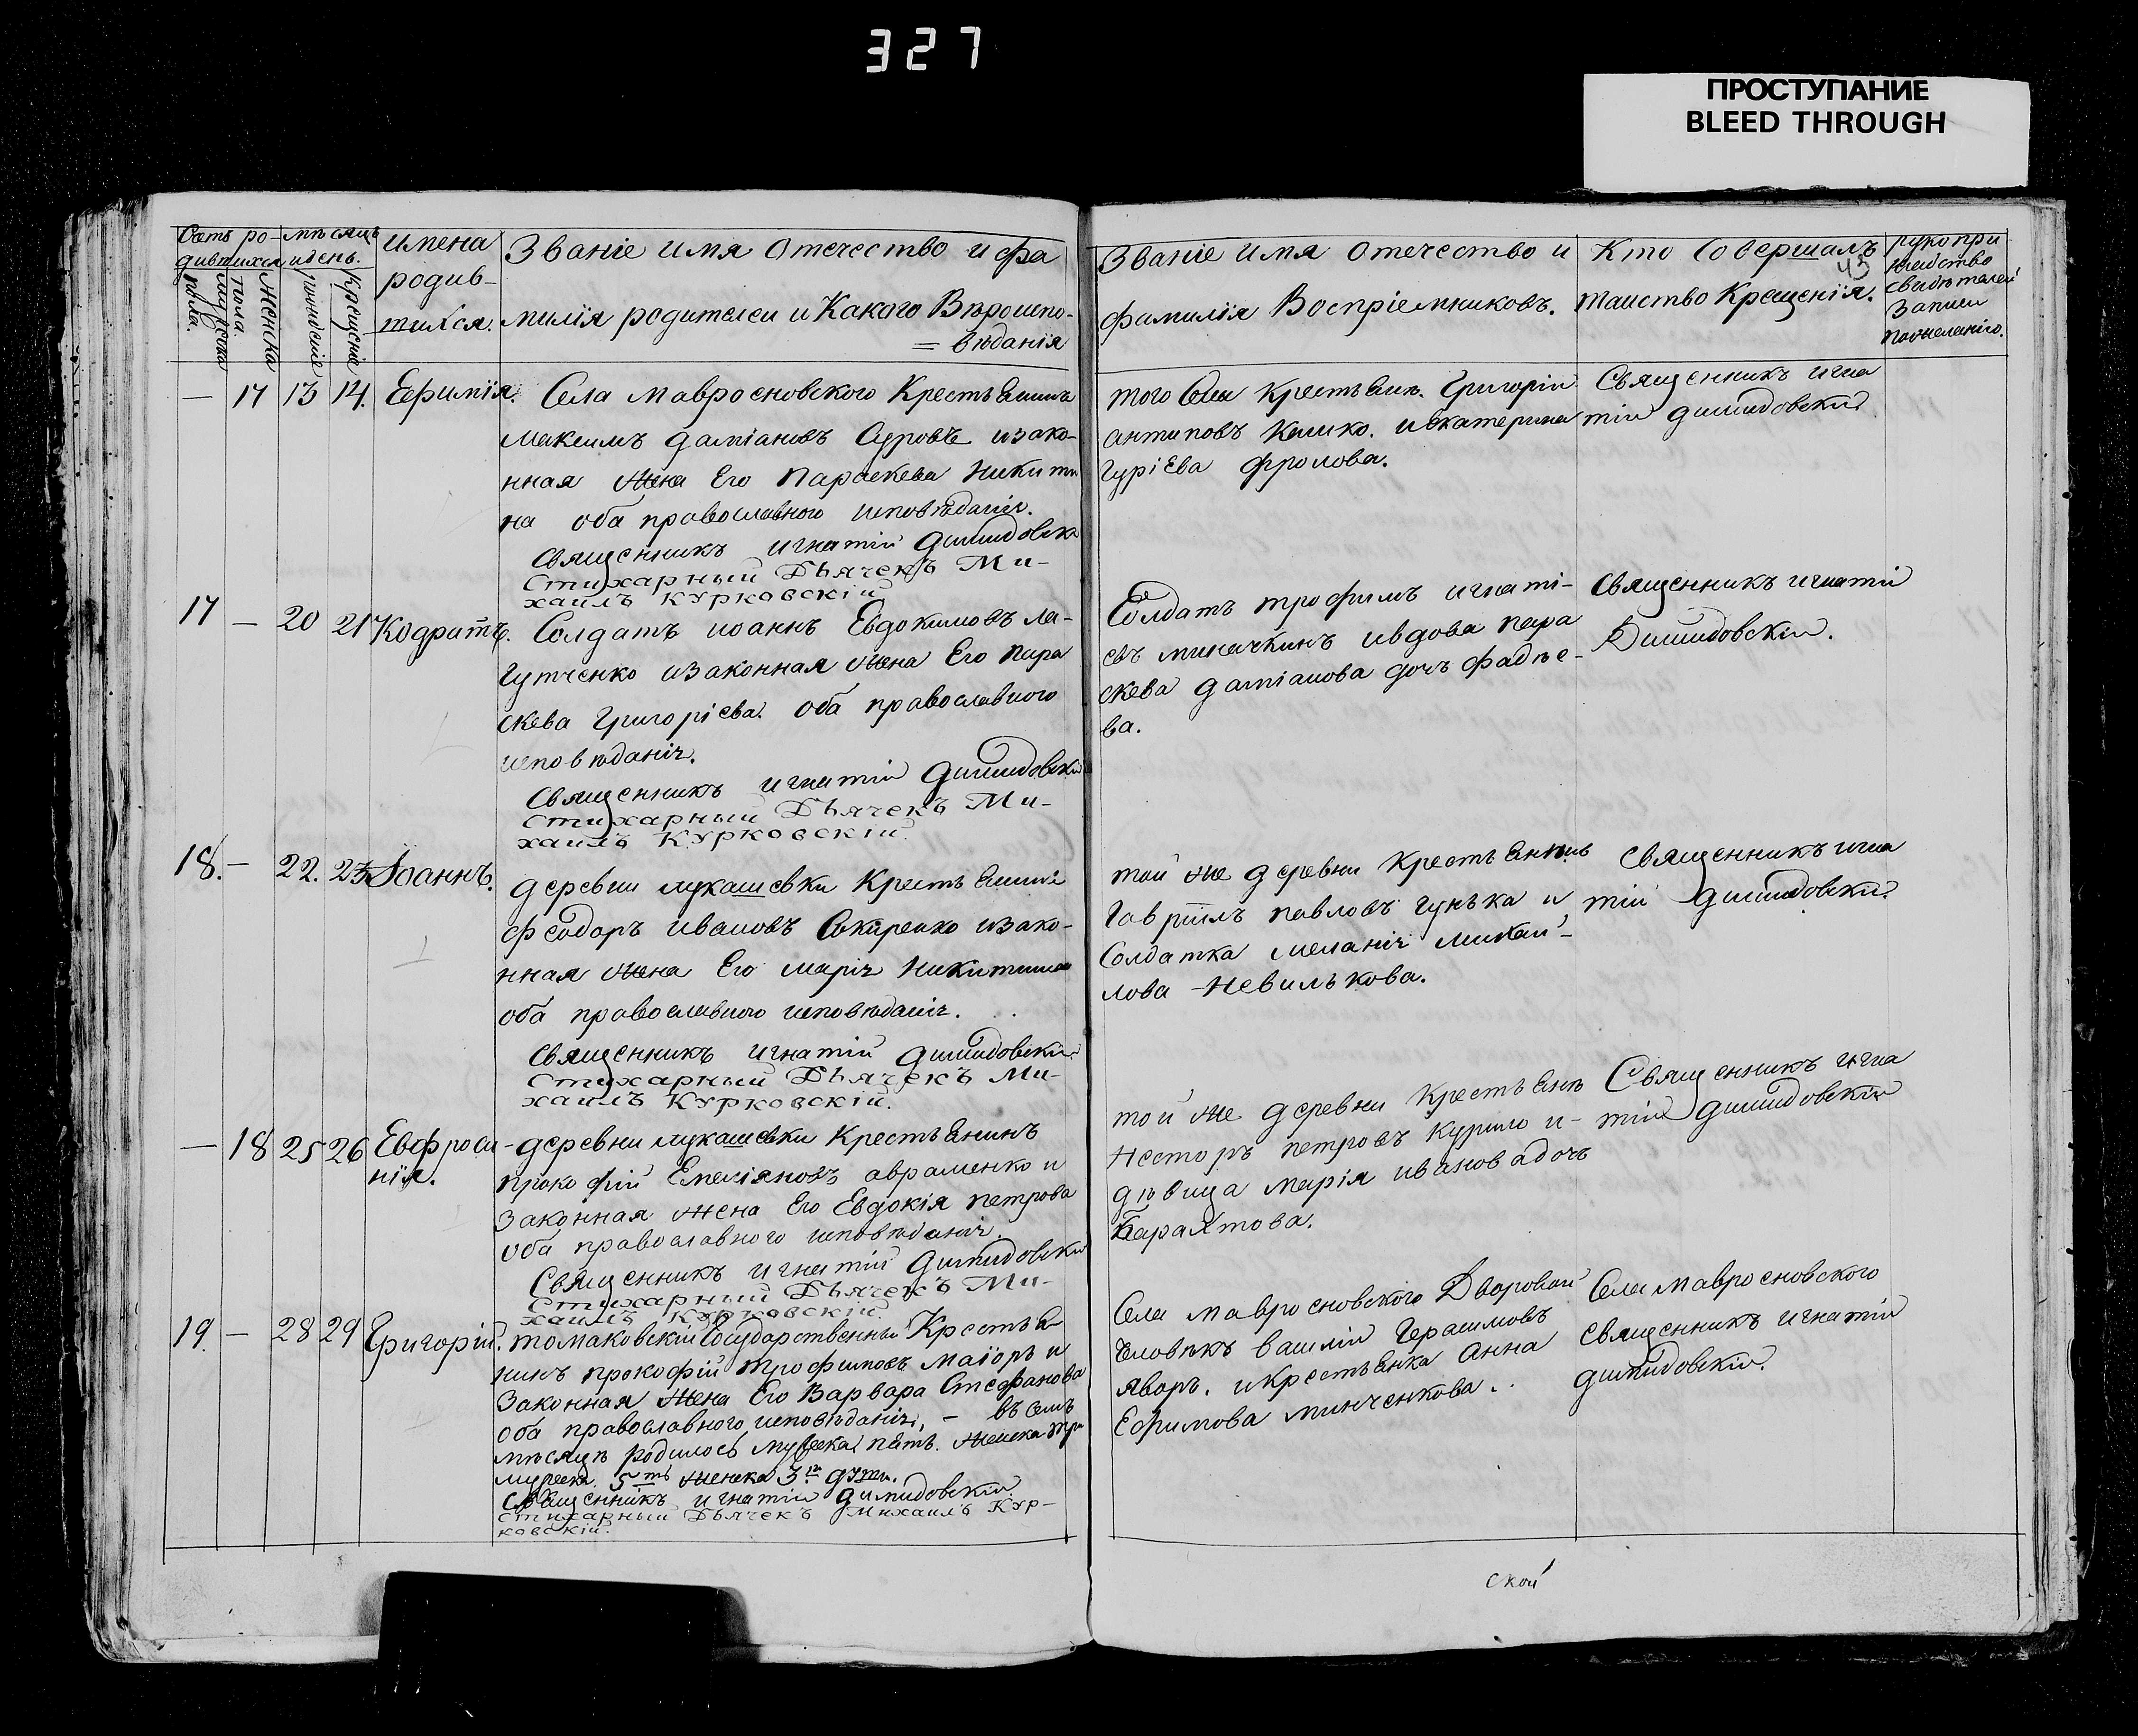 327
ПРОСТУПАНИЕ
BLEED THROUGH
Счетъ ро-
дившихся
мѣсяцъ
и день.
мужеска
пола.
женска
пола.
рожденіе
крещеніе
имена
родив-
шихся.
Званіе имя отечество и фа
милія родителей и Какого Вѣроиспо-
= вѣданія
Званіе имя отечество и
фамилія Воспріемниковъ.
Кто Совершалъ
таинство Крещенія.
43
рукопри
свидѣтелей
Записи
— 17 13 14. Ефимія. Села Мавросновского Крестьянинъ
Максимъ даміановъ Суровъ изако-
нная жена Его Параскева Никити
на оба православного исповѣданія.
Священникъ игнатій
Стихарный Дьячекъ Ми-
хаилъ Курковскій
того Села Крестьян. Григорій
антиповъ и екатерина
гуріева фролова.
Священникъ игна
тій
17 — 20 21 Кодратъ. Солдатъ иоаннъ Евдокимовъ ла-
гутченко изаконная жена Его пара
скева григоріева. оба православного
исповѣданія.
Священникъ игнатій
Стихарный Дьячекъ Ми-
хаилъ Курковскій.
Солдатъ трофимъ игнаті-
евъ миначкинъ ивдова пара
скева даміанова дочь фадѣе-
ва.
Священникъ игнатій
18. — 22. 23 Іоаннъ. деревни лукашевки Крестьянинъ
феодоръ ивановъ изако-
нная жена Его марія Никитина
оба православного исповѣданія.
Священникъ игнатій
Стихарный Дьячекъ Ми-
хаилъ Курковскій.
той же деревни Крестьянинъ
гавріилъ павловъ гунька и
Солдатка меланія михаи-
лова Невилькова.
Священникъ игна
тій
— 18 25 26 Евфроси-
нія.
деревни лукашевки Крестьянинъ
прокофій Емеліяновъ авраменко и
Законная жена Его Евдокія петрова
оба православного исповѣданія.
Священникъ игнатій
Стихарный Дьячекъ Ми-
хаилъ Курковскій.
той же деревни Крестьянъ
Несторъ петровъ курило и-
дѣвица марія иванова дочь
Священникъ игна
тій
19. — 28 29 Григорій. томаковскій Государственный Крестья
нинъ прокофій трофимовъ маіоръ и
Законная жена Его Варвара Стефанова
оба православного исповѣданія. — въ семъ
мѣсяцѣ родилось мужеска пять. женска три
мужеска. 5ть женска 3и
Священникъ игнатій
Стихарный Дьячекъ Михаилъ Кур-
ковскій.
Села мавросновского Дворовой
человѣкъ василій Герасимовъ
яворъ. и Крестьянка анна
Ефимова минченкова.
Села мавросновского
Священникъ игнатій
ской